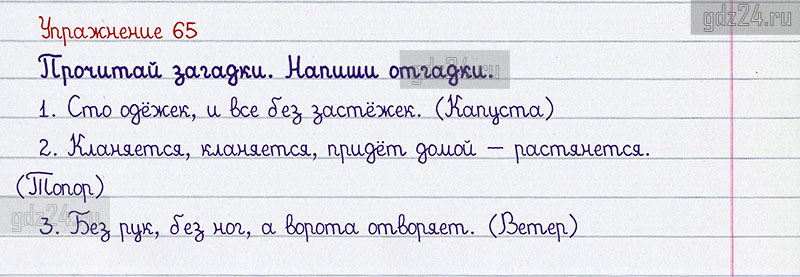 gdz24.ru
Упражнение 65
Прочитай загадки. Напиши отгадки.
gdz24.ru
1. Сто одёжек, и все без застёжек. (Капуста)
2. Кланяется, кланяется, придёт домой – растянется.
(Топор)
gdz24.ru
3. Без рук, без ног, а ворота отворяет. (Ветер)